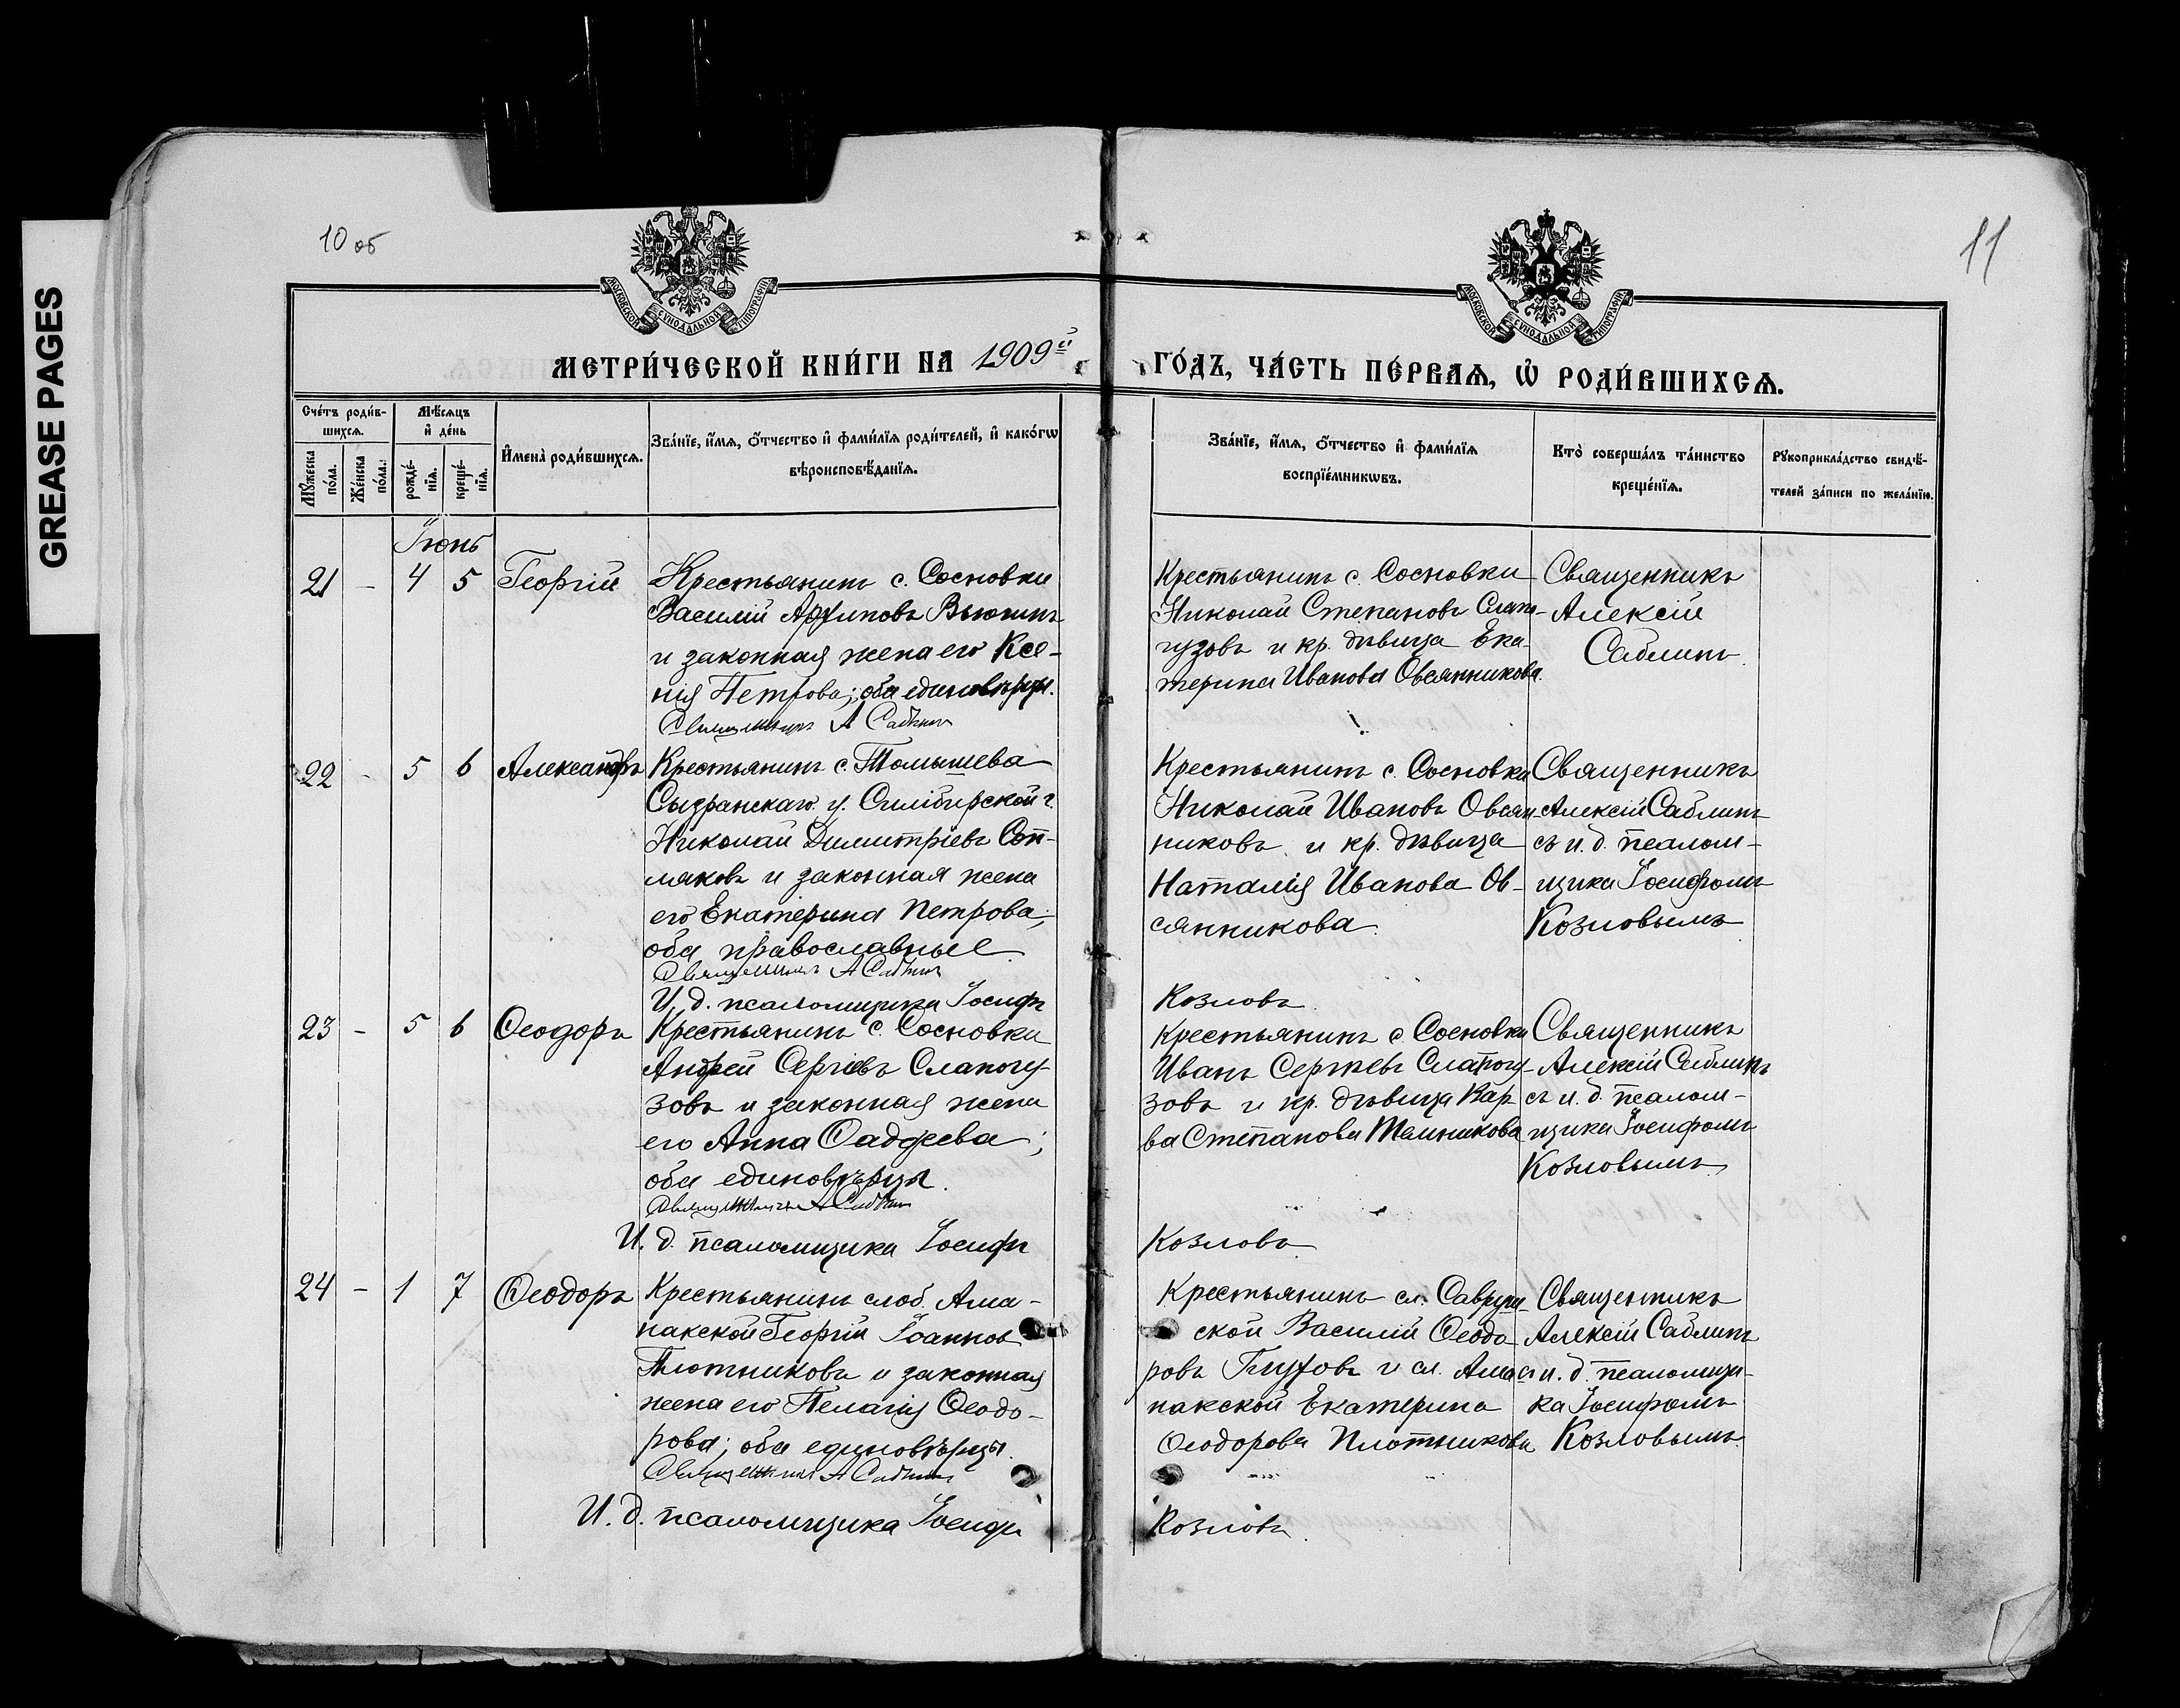 GREASE PAGES
10 об
11
МОСКОВСКОЙ СУНОДАЛЬНОЙ ТИПОГРАФІИ
МОСКОВСКОЙ СУНОДАЛЬНОЙ ТИПОГРАФІИ
МЕТРИ́ЧЕСКОЙ КНИ́ГИ НА 1909й ГО́ДЪ, ЧА́СТЬ ПЕ́РВАѦ, Ѡ҆ РОДИ́ВШИХСѦ.
Сче́тъ роди́в-
шихсѧ.
Мѣ́сѧцъ
и҆ де́нь
Мꙋ́жеска по́ла.
Же́нска по́ла.
рожде́-нїѧ.
креще́-нїѧ.
И҆мена̀ роди́вшихсѧ.
Зва́нїе, и҆́мѧ, ѻ҆́тчество и҆ фами́лїѧ роди́телей, и҆ како́гѡ
вѣроисповѣ́данїѧ.
Зва́нїе, и҆́мѧ, ѻ҆́тчество и҆ фами́лїѧ
воспрїе́мникѡвъ.
Кто̀ соверша́лъ та́инство
креще́нїѧ.
Рꙋкоприкла́дство свидѣ́-
телей за́писи по жела́нїю.
Іюнь
21 - 4 5 Георгій
Крестьянинъ с. Сосновки
Василій Архиповъ Вьюшинъ
и законная жена его Ксе-
нія Петрова; оба единовѣрцы.
Священникъ А Саблинъ
Крестьянинъ с. Сосновки
Николай Степановъ Слапо-
гузовъ и кр. дѣвица Ека-
терина Иванова Овсянникова.
Священникъ
Алексій
Саблинъ.
22 - 5 6 Александръ
Крестьянинъ с. Томышева
Сызранскаго у. Симбирской г.
Николай Димитріевъ
и законная жена
его Екатерина Петрова;
оба православные.
Священникъ А Саблинъ
И. д. псаломщика Іосифъ
Крестьянинъ с. Сосновки
Николай Ивановъ Овсян-
никовъ и кр. дѣвица
Наталія Иванова Ов-
сянникова.
Козловъ
Священникъ
Алексій Саблинъ
съ и. д. псалом-
щика Іосифомъ
Козловымъ
23 - 5 6 Ѳеодоръ
Крестьянинъ с. Сосновки
Андрей Сергіевъ Слапогу-
зовъ и законная жена
его Анна Ѳаддеева;
оба единовѣрцы.
Священникъ А Саблинъ
И. д. псаломщика Іосифъ
Крестьянинъ с. Сосновки
Иванъ Сергѣевъ Слапогу-
зовъ и кр. дѣвица Вар-
ва Степанова
Козловъ
Священникъ
Алексій Саблинъ
съ и. д. псалом-
щика Іосифомъ
Козловымъ
24 - 1 7 Ѳеодоръ
Крестьянинъ слоб. Ама-
накской Георгій Іоанновъ
Плотниковъ и законная
жена его Пелагія Ѳеодо-
рова; оба единовѣрцы.
Священникъ А Саблинъ
И. д. псаломщика Іосифъ
Крестьянинъ сл. Савруш-
ской Василій Ѳеодо-
ровъ Глуховъ и сл. Ама-
накской Екатерина
Ѳеодорова Плотникова
Козловъ.
Священникъ
Алексій Саблинъ
съ и. д. псаломщи-
ка Іосифомъ
Козловымъ.